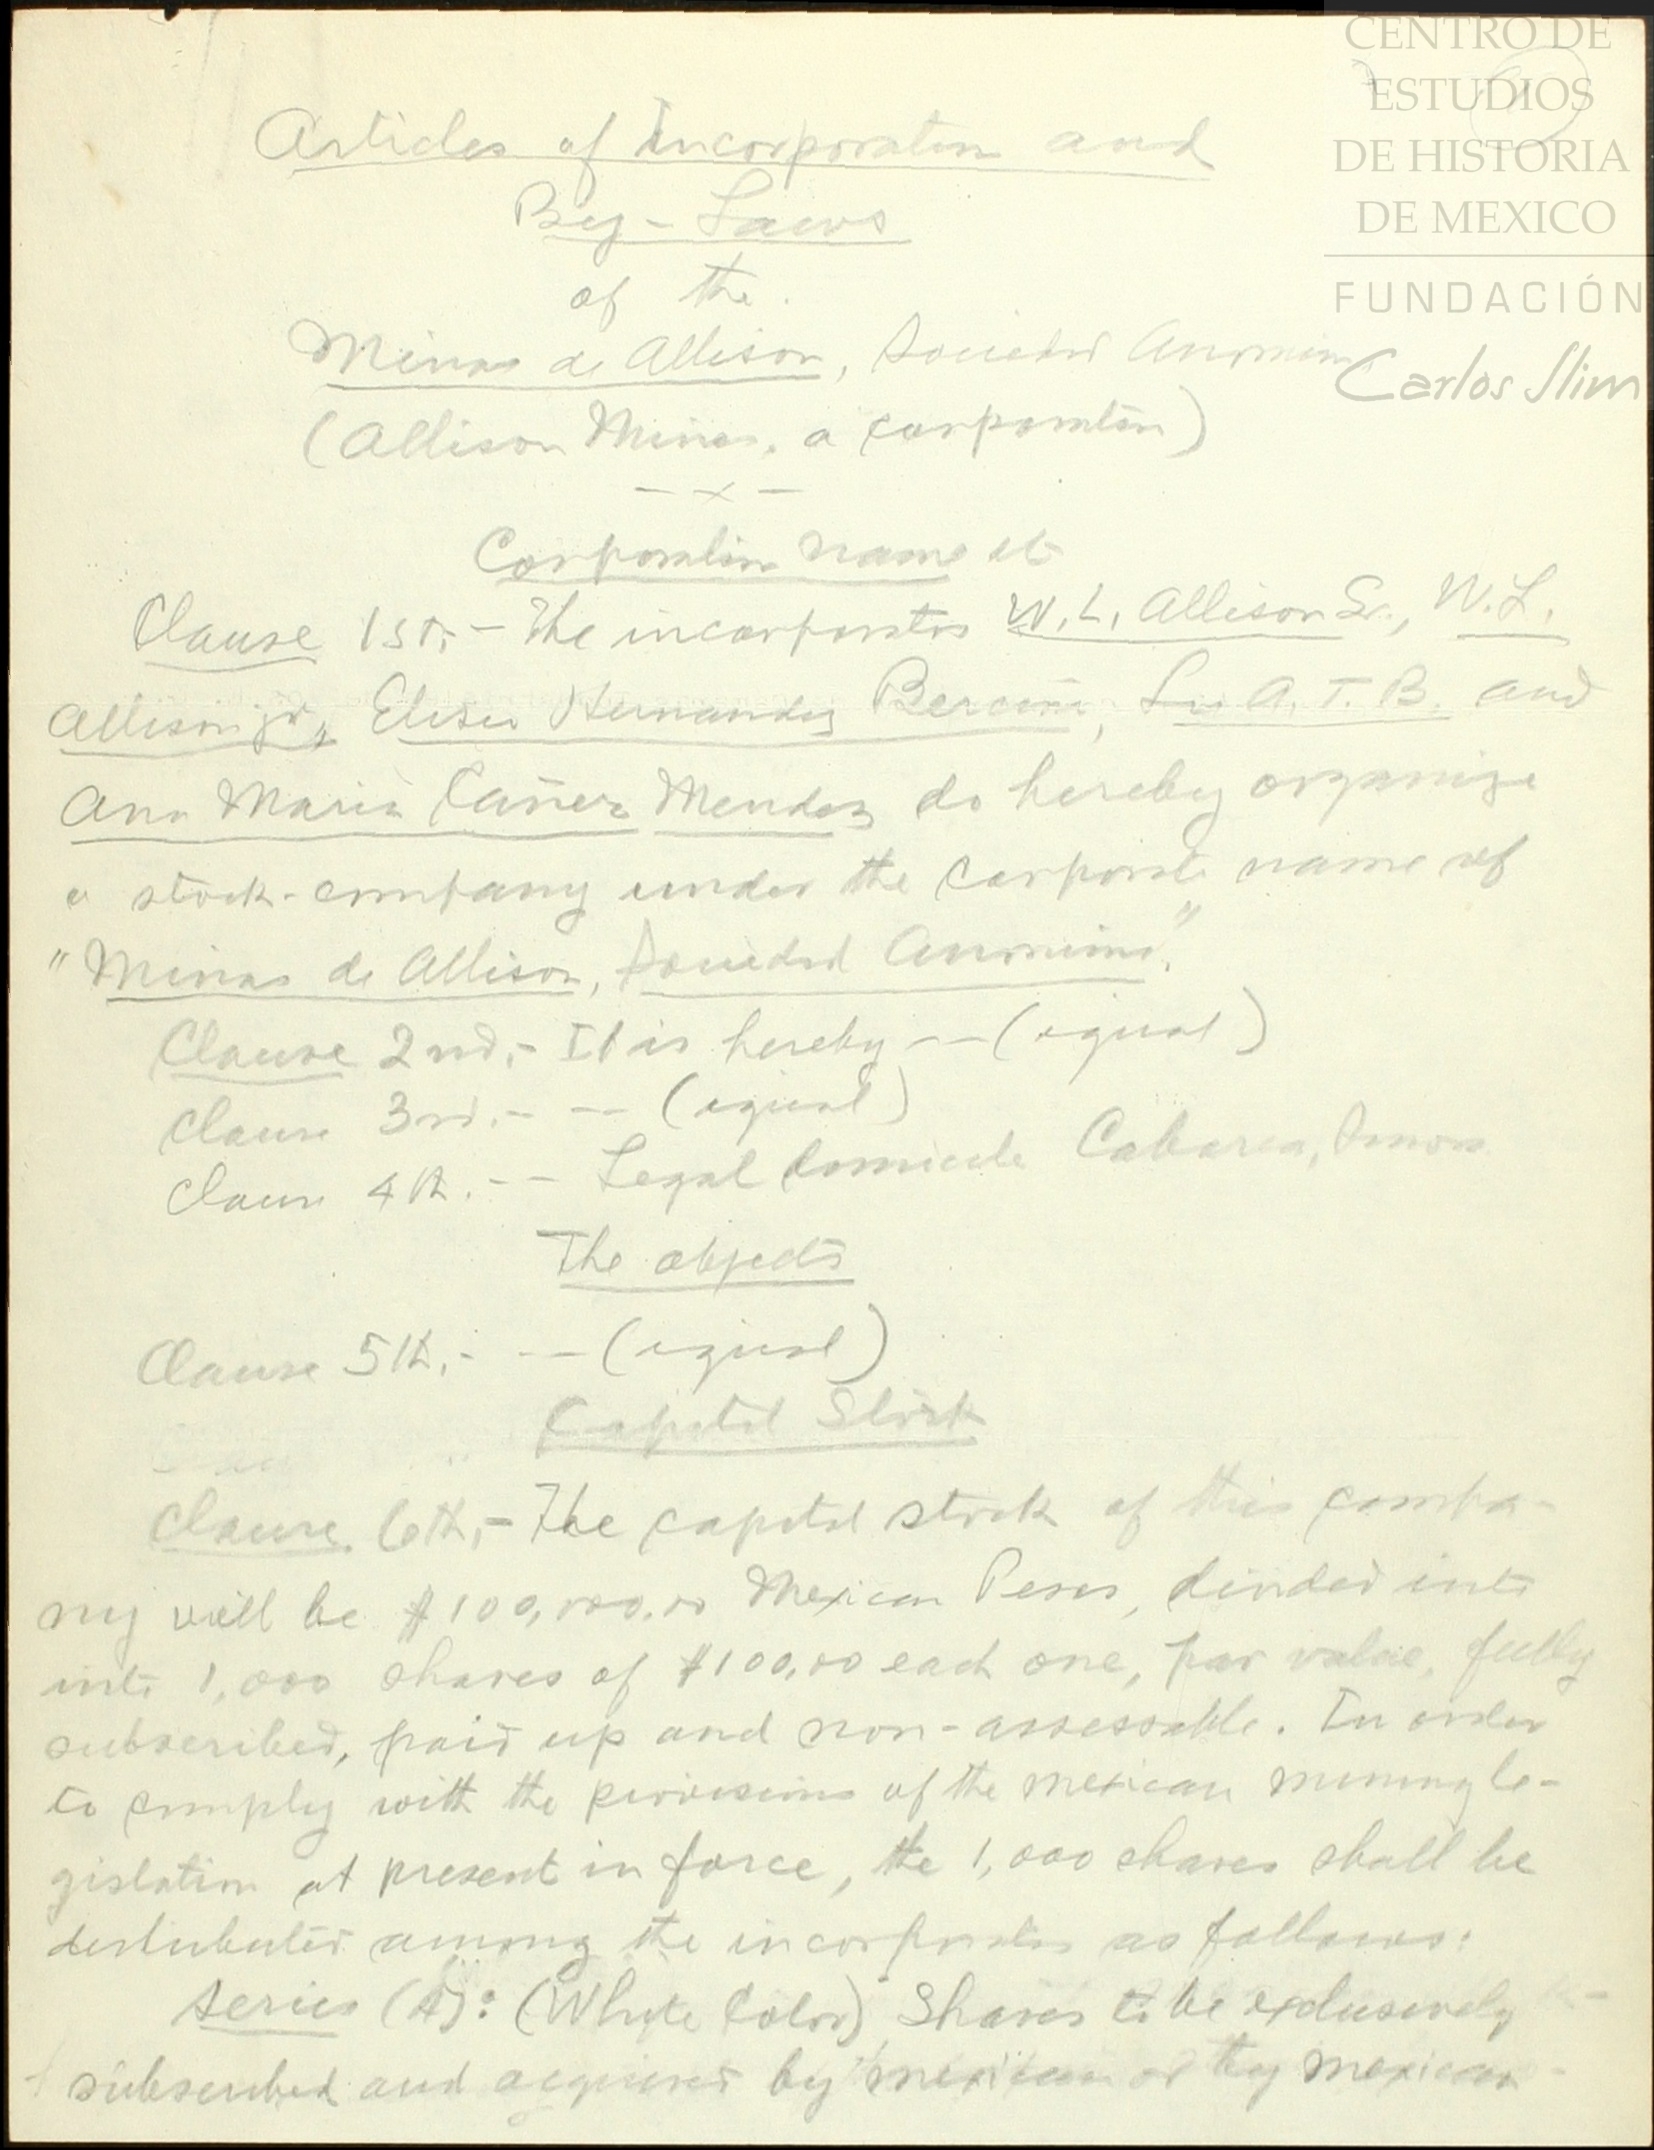 CENTRO DE
ESTUDIOS
DE HISTORIA
DE MEXICO
FUNDACIÓN
Carlos Slim
Articles of Incorporation and
By-Laws
of the
Minas de Allison, Sociedad Anonima
(Allison Mines, a corporation)
- x -
Corporation name etc
Clause 1st.- The incorporators W. L. Allison Sr., W. L.
Allison jr., Eliseo Hernandez A. T. B. and
Ana Maria Mendez do hereby organize
a stock-company under the corporate name of
"Minas de Allison, Sociedad Anonima".
Clause 2nd.- It is hereby -- (igual)
Clause 3rd.- -- (igual)
Clause 4th.- - Legal domicile Caborca, Sonora
The objects
Clause 5th.- -- (igual)
Capital Stock
Clause 6th.- The capital stock of this compa-
ny will be $100,000.00 Mexican Pesos, divided into
into 1,000 shares of $100.00 each one, par value, fully
subscribed, paid up and non-assessable. In order
to comply with the provisions of the mexican mining le-
gislation at present in force, the 1,000 shares shall be
distributed among the incorporators as follows:
Series (A): (White Color) Shares to be exclusively
subscribed and acquired by mexican or by mexican